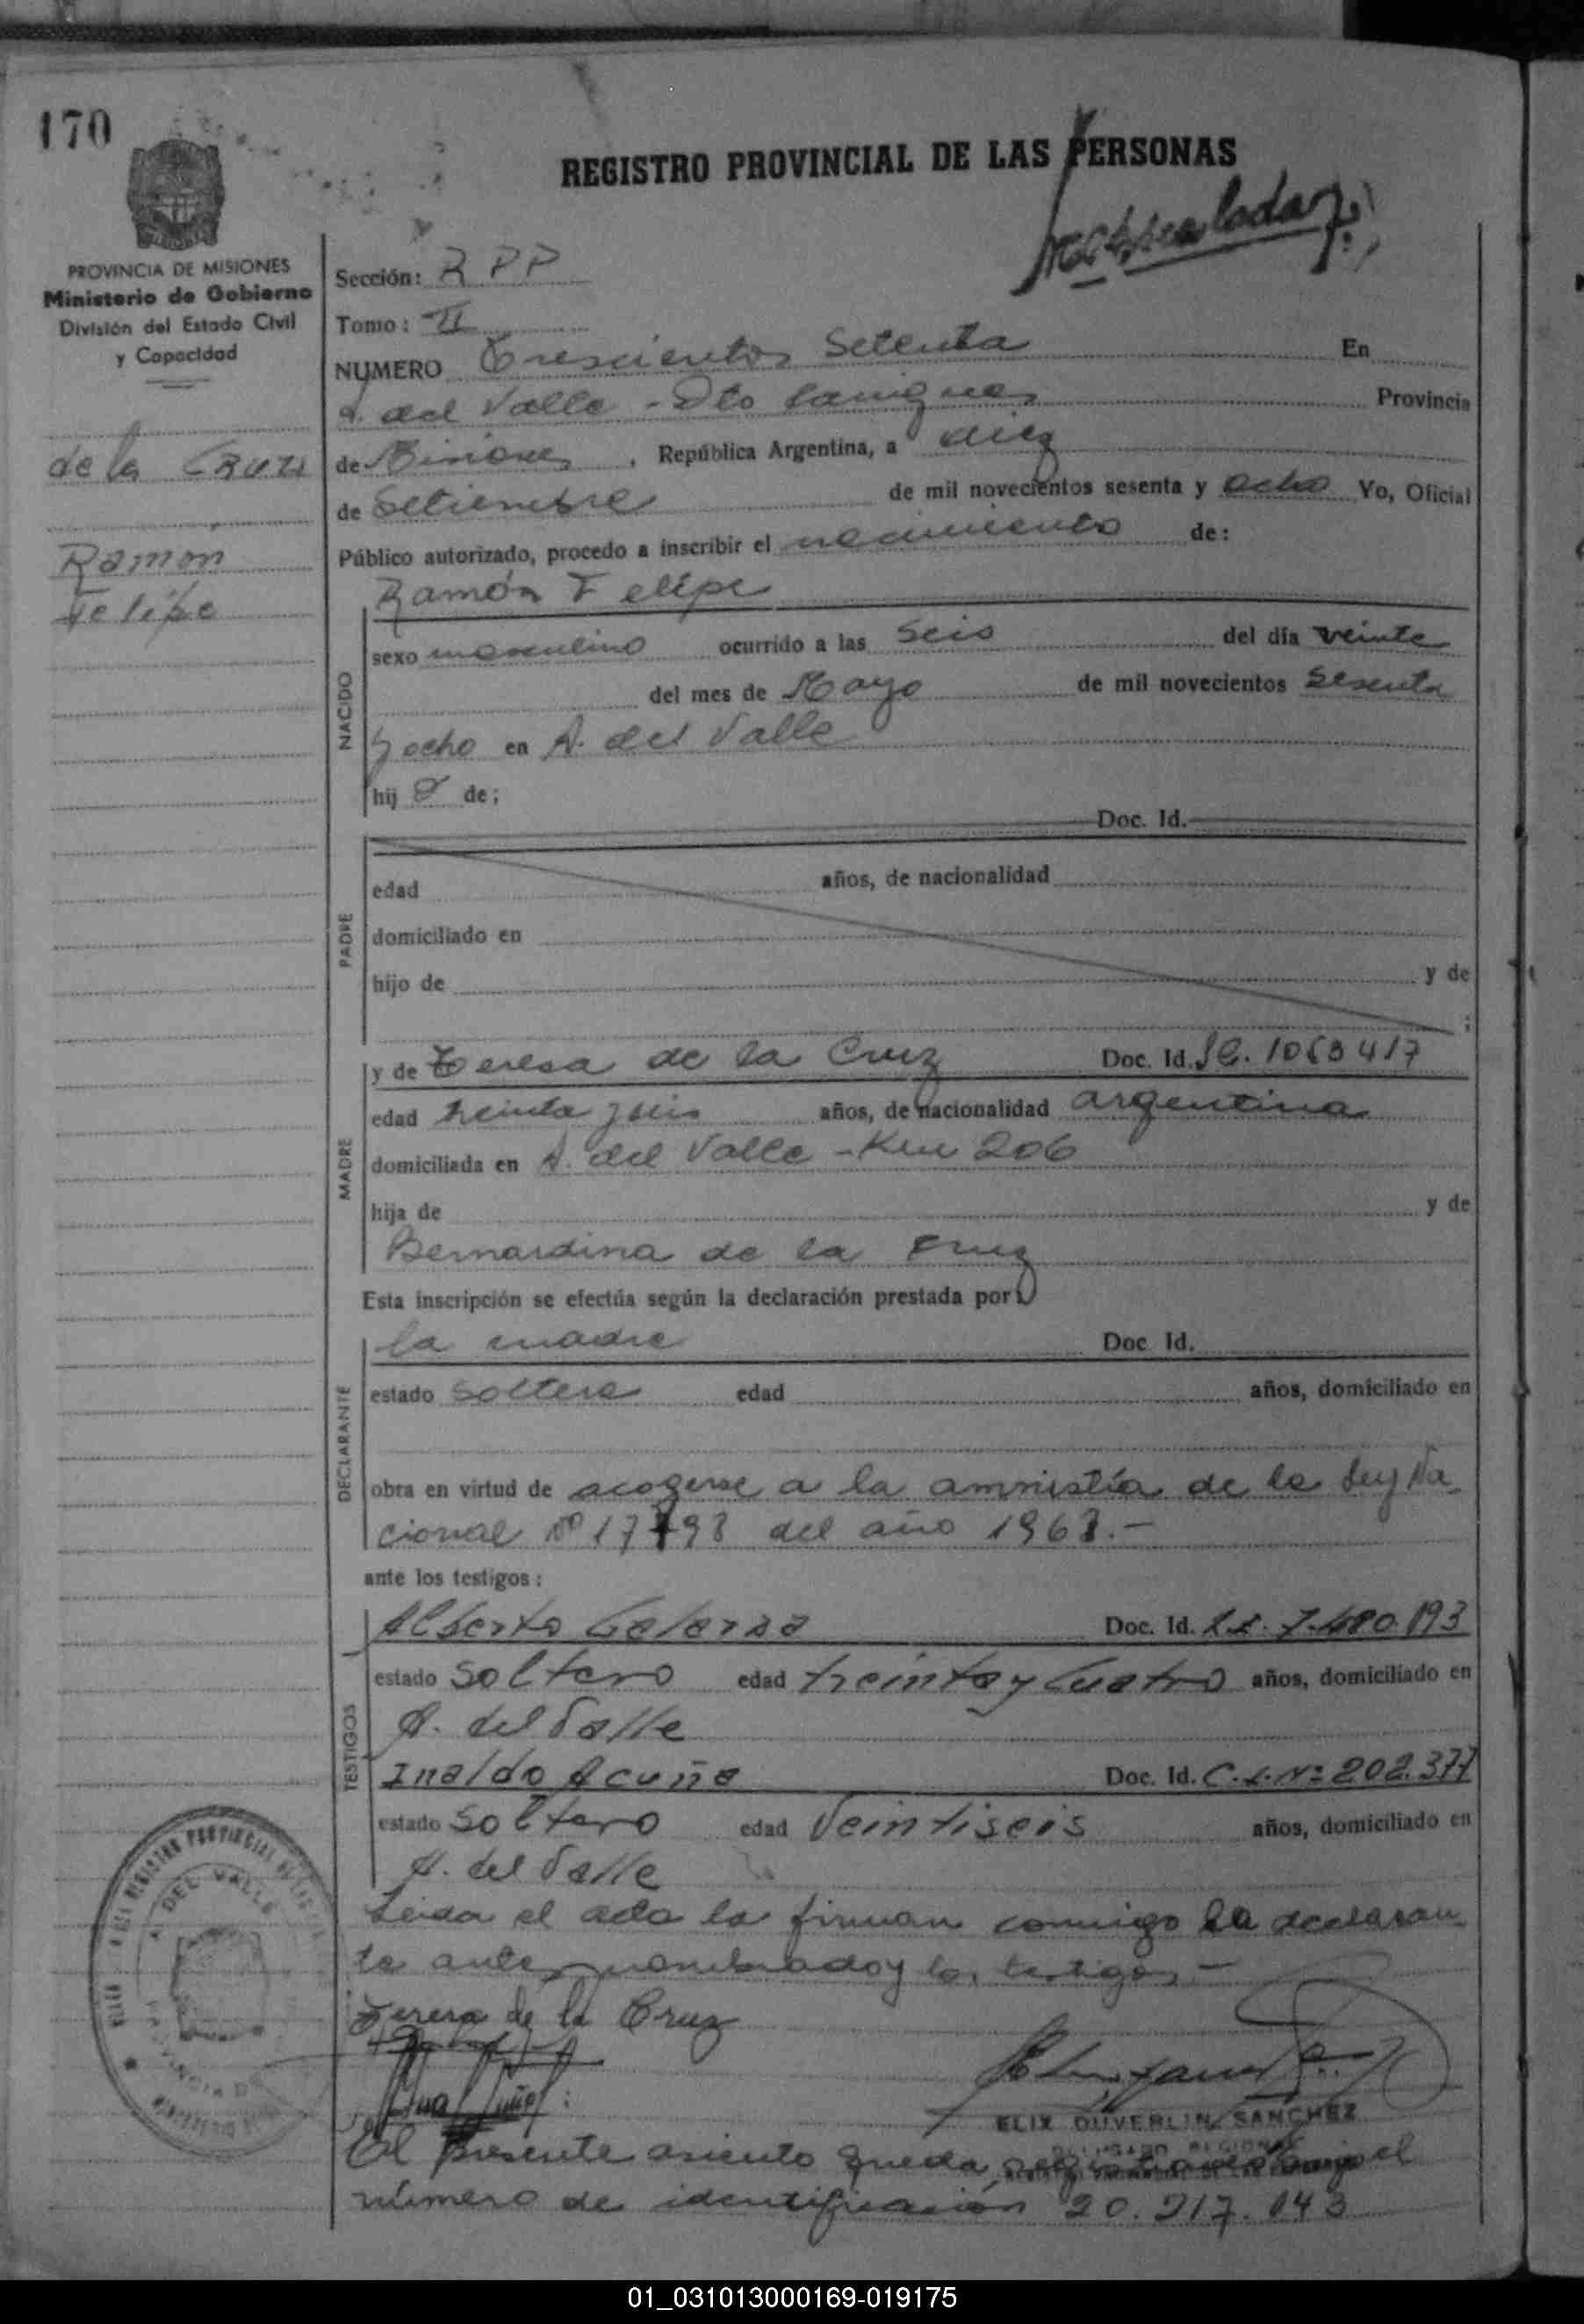 170
REGISTRO PROVINCIAL DE LAS PERSONAS
matriculado
PROVINCIA DE MISIONES
Ministerio de Gobierno
División del Estado Civil
y Capacidad
de la Cruz
Ramon
Felipe
Sección: R P P
Tomo: II
NUMERO Trescientos Setenta En
A. del Valle - Dto Cainguas Provincia
de Misiones, República Argentina, a diez
de Setiembre de mil novecientos sesenta y ocho Yo, Oficial
Público autorizado, procedo a inscribir el nacimiento de:
Ramón Felipe
NACIDO
sexo masculino ocurrido a las seis del día veinte
del mes de Mayo de mil novecientos sesenta
y ocho en A. del Valle
hij o de;
Doc. Id.
PADRE
edad años, de nacionalidad
domiciliado en
hijo de y de
;
MADRE
y de Teresa de la Cruz Doc. Id.
edad treinta y seis años, de nacionalidad argentina
domiciliada en A. del Valle - Km 206
hija de y de
Bernardina de la Cruz
Esta inscripción se efectúa según la declaración prestada por
DECLARANTE
la madre Doc. Id.
estado soltera edad años, domiciliado en
obra en virtud de acogerse a la amnistía de la Ley Na
cional Nº del año
ante los testigos:
TESTIGOS
Alberto Galarza Doc. Id.
estado Soltero edad treinta y Cuatro años, domiciliado en
A. del Valle
Inaldo Acuña Doc. Id. C. I. Nº 202.377
estado Soltero edad Veintiseis años, domiciliado en
A. del Valle
Leida el acta la firman conmigo la declaran
te antes nombrado y los testigos -
Teresa de la Cruz
ELIX DUVERLIN SANCHEZ
DELEGADO REGIONAL
El presente asiento queda registrado bajo el
número de identificación 20.217.143
A. DEL VALLE
01_031013000169-019175